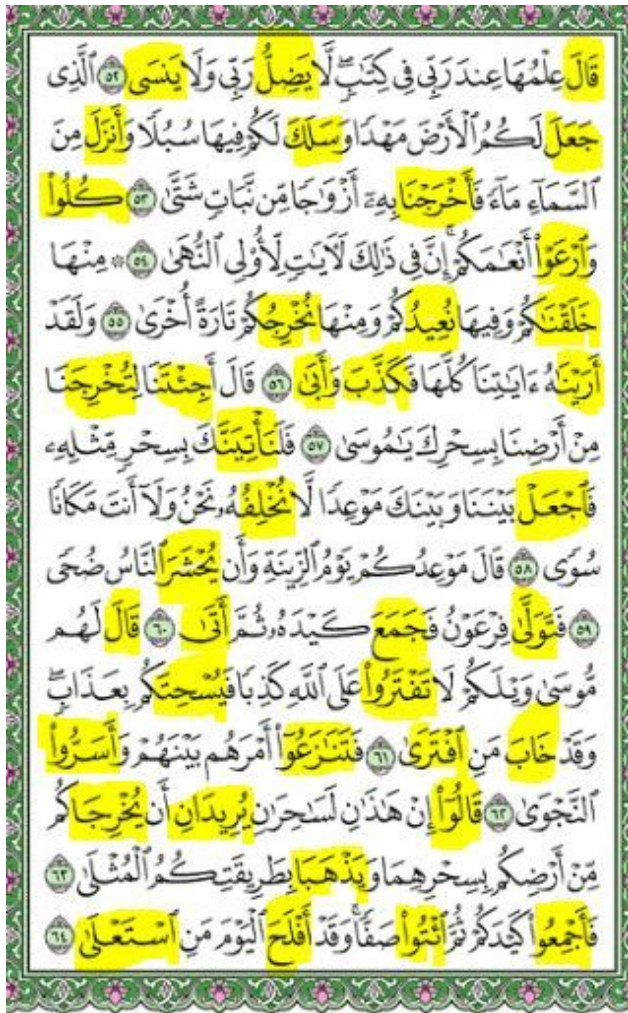 قَالَ عِلْمُهَا عِندَ رَبِّى فِى كِتَٰبٍۖ لَّا يَضِلُّ رَبِّى وَلَا يَنسَى ۝٥٢ ٱلَّذِى
جَعَلَ لَكُمُ ٱلْأَرْضَ مَهْدًا وَسَلَكَ لَكُمْ فِيهَا سُبُلًا وَأَنزَلَ مِنَ
ٱلسَّمَآءِ مَآءً فَأَخْرَجْنَا بِهِۦٓ أَزْوَٰجًا مِّن نَّبَاتٍ شَتَّىٰ ۝٥٣ كُلُوا۟
وَٱرْعَوْا۟ أَنْعَٰمَكُمْۗ إِنَّ فِى ذَٰلِكَ لَـَٔايَٰتٍ لِّأُو۟لِى ٱلنُّهَىٰ ۝٥٤ ۞ مِنْهَا
خَلَقْنَٰكُمْ وَفِيهَا نُعِيدُكُمْ وَمِنْهَا نُخْرِجُكُمْ تَارَةً أُخْرَىٰ ۝٥٥ وَلَقَدْ
أَرَيْنَٰهُ ءَايَٰتِنَا كُلَّهَا فَكَذَّبَ وَأَبَىٰ ۝٥٦ قَالَ أَجِئْتَنَا لِتُخْرِجَنَا
مِنْ أَرْضِنَا بِسِحْرِكَ يَٰمُوسَىٰ ۝٥٧ فَلَنَأْتِيَنَّكَ بِسِحْرٍ مِّثْلِهِۦ
فَٱجْعَلْ بَيْنَنَا وَبَيْنَكَ مَوْعِدًا لَّا نُخْلِفُهُۥ نَحْنُ وَلَآ أَنتَ مَكَانًا
سُوًى ۝٥٨ قَالَ مَوْعِدُكُمْ يَوْمُ ٱلزِّينَةِ وَأَن يُحْشَرَ ٱلنَّاسُ ضُحًى
۝٥٩ فَتَوَلَّىٰ فِرْعَوْنُ فَجَمَعَ كَيْدَهُۥ ثُمَّ أَتَىٰ ۝٦٠ قَالَ لَهُم
مُّوسَىٰ وَيْلَكُمْ لَا تَفْتَرُوا۟ عَلَى ٱللَّهِ كَذِبًا فَيُسْحِتَكُم بِعَذَابٍۖ
وَقَدْ خَابَ مَنِ ٱفْتَرَىٰ ۝٦١ فَتَنَٰزَعُوٓا۟ أَمْرَهُم بَيْنَهُمْ وَأَسَرُّوا۟
ٱلنَّجْوَىٰ ۝٦٢ قَالُوٓا۟ إِنْ هَٰذَٰنِ لَسَٰحِرَٰنِ يُرِيدَانِ أَن يُخْرِجَاكُم
مِّنْ أَرْضِكُم بِسِحْرِهِمَا وَيَذْهَبَا بِطَرِيقَتِكُمُ ٱلْمُثْلَىٰ ۝٦٣
فَأَجْمِعُوا۟ كَيْدَكُمْ ثُمَّ ٱئْتُوا۟ صَفًّاۚ وَقَدْ أَفْلَحَ ٱلْيَوْمَ مَنِ ٱسْتَعْلَىٰ ۝٦٤